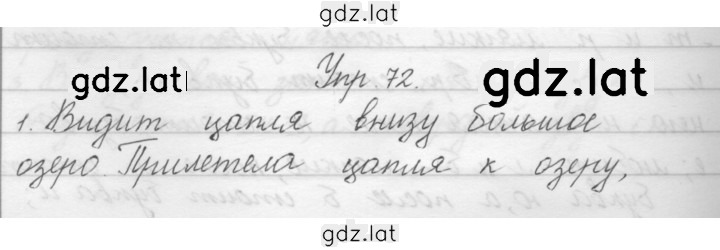 gdz.lat
Упр. 72.
gdz.lat
gdz.lat
1. Видит цапля внизу большое
озеро. Прилетела цапля к озеру,
gdz.lat